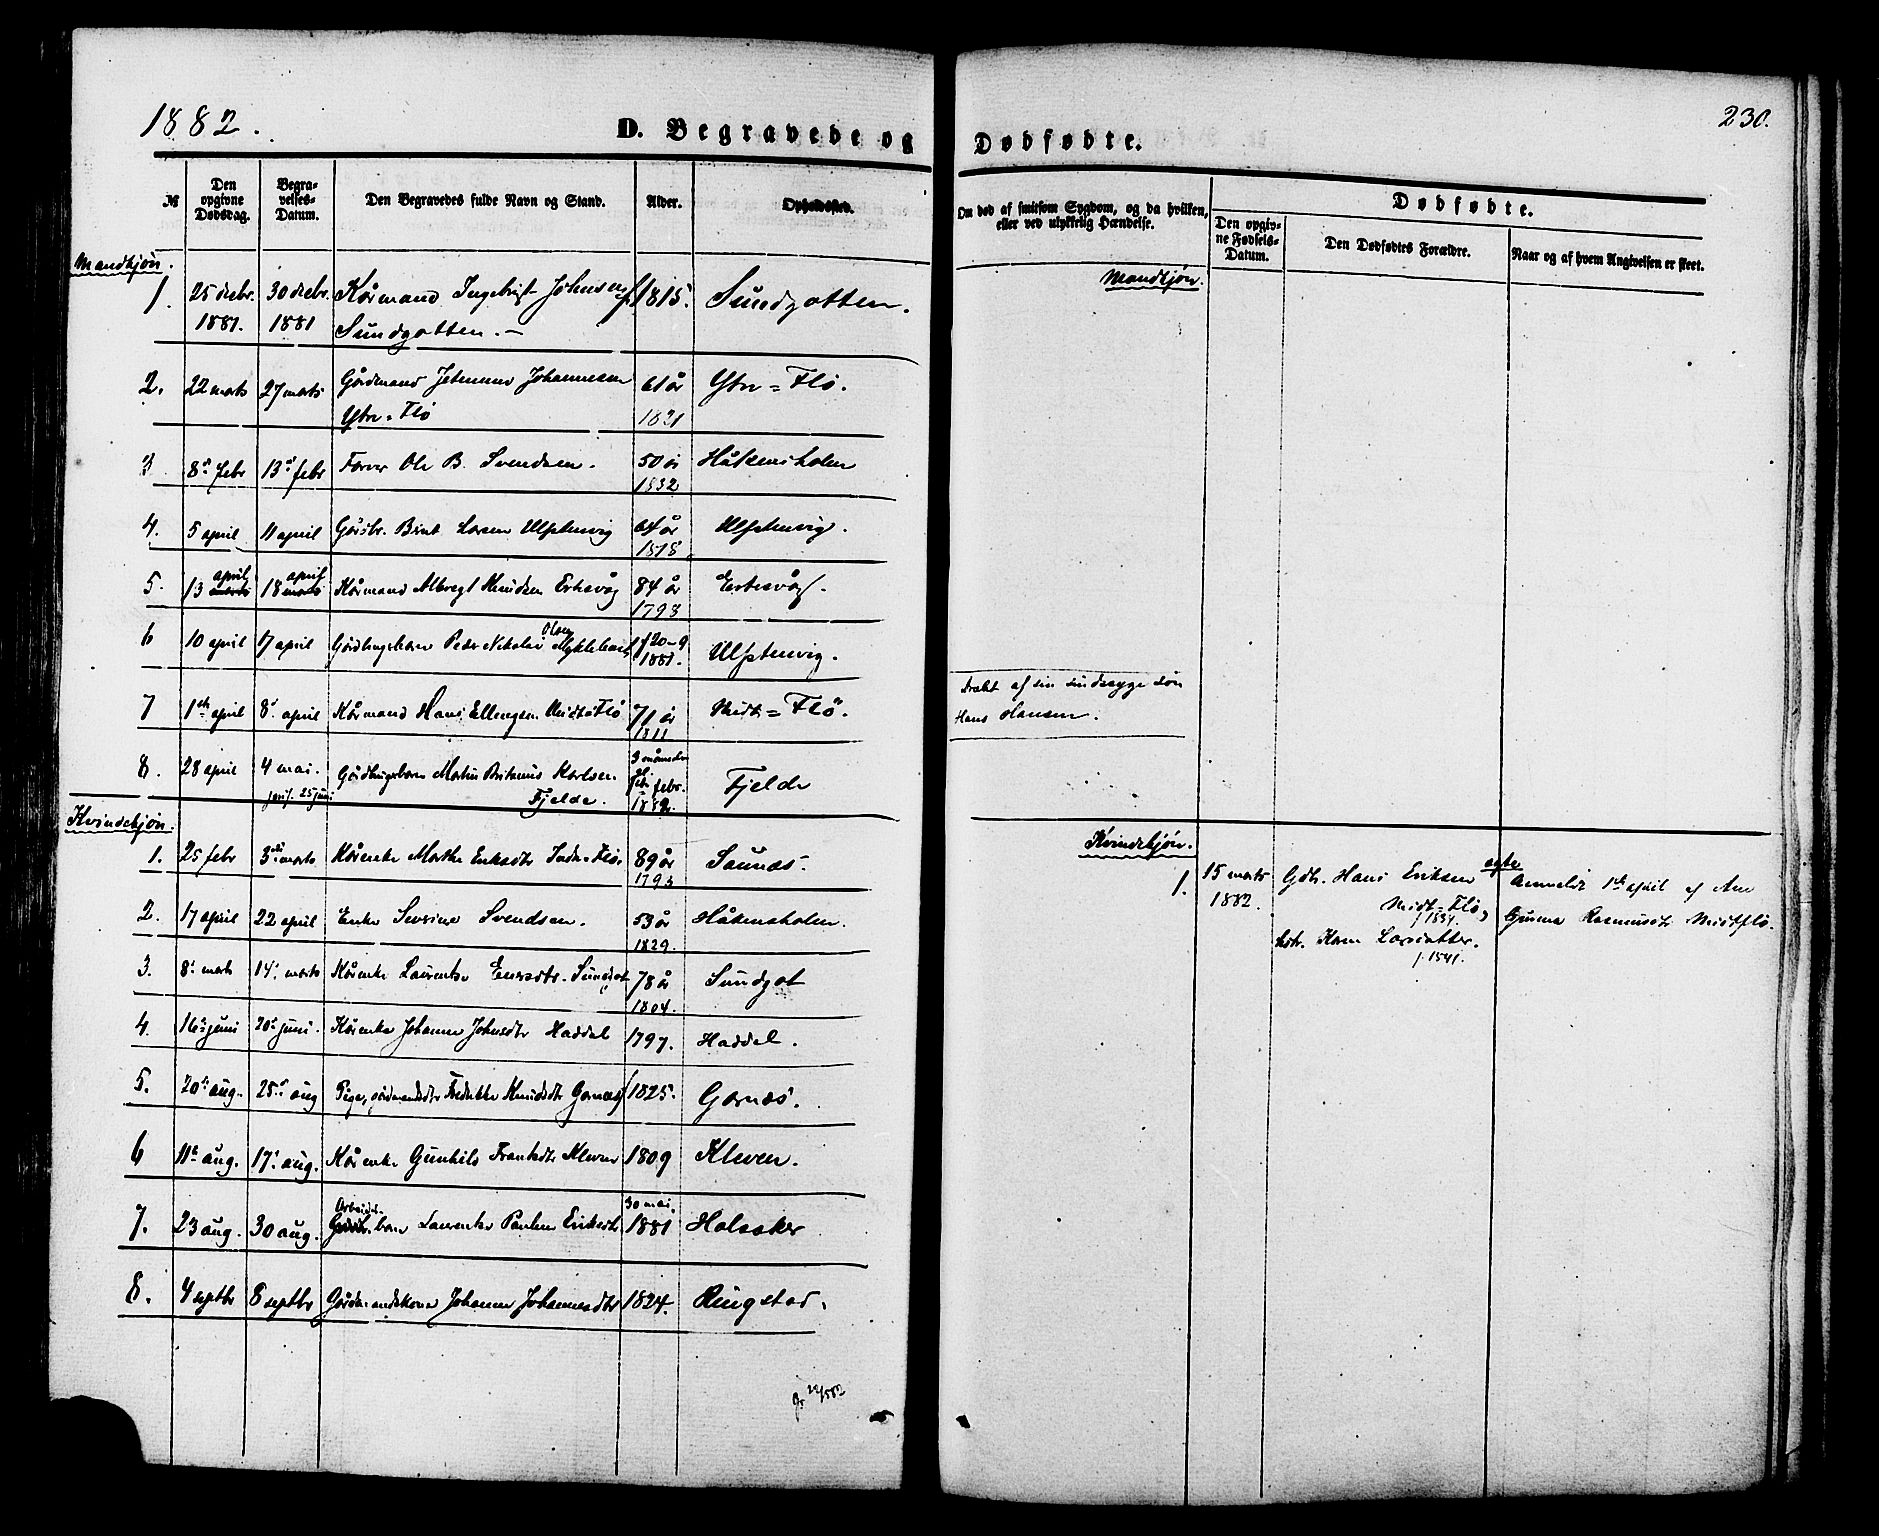 1882.
D. Begravede og Dødfødte.
230.
№
Den opgivne Dødsdag.
Begravelses-Datum.
Den Begravedes fulde Navn og Stand.
Alder.
Opholdssted.
Om død af smitsom Sygdom, og da hvilken, eller ved ulykkelig Hændelse.
Dødfødte.
Den opgivne Fødsels-Datum.
Den Dødfødtes Forældre.
Naar og af hvem Angivelsen er skeet.
Mandkjøn.
Mandkjøn.
1. 25 decbr. 30 decbr. Kårmand Ingebrigt Johnsen f. 1815. Sundgotten.
1881. 1881 Sundgotten.
2. 22 marts 27 marts Gårdmand Johannesen 61 år Ytre=Flø.
Ytre=Flø 1821
3 8de febr 13de febr Farver Ole B. Svendsen. 50 år Håkensholm
1832
4. 5 april 11 april Larsen Ulfstenvig 64 år Ulfstenvig.
1818.
5. 13 april marts 18 april marts Kårmand Albregt Knudsen Ertesvåg 84 år Ertesvåg.
1798
6 10 april 17 april Peder Nikolai Olsen Myklebust f 20-9 Ulfstenvig.
1881.
7 1ste april 8de april Kårmand Hans Ellingsen Midt=Flø 71 år Midt=Flø.
1811
Dræbt af sin sindssyge søn
Hans Hansen.
8. 28 april 4 mai. Gårdbrugerbarn Martin Karlsen 3 måneder Fjelde
25 juni Fjelde. febr. 1882.
Kvindekjøn.
Kvindekjøn.
1. 25 febr 3die marts Kårenke Marthe Eriksdtr Indre=Flø. 89 år Saunes.
1793
1. 15 marts Gdbr. Hans Eriksen ægte Anmeldt 1ste april af Ane
1882. Midt=Flø, f 1834 Gurina Rasmusdtr Midtflø.
hstr. Karen Larsdatter.
f. 1841.
2. 17 april 22 april Enke Severine Svendsen. 53 år Håkensholm.
1829.
3. 8de marts 14de marts Kårenke Laurentse Sundgot 78 år Sundgot
1804.
4. 16de juni 20de juni. Kårenke Johanne Johnsdtr Haddal 1797. Haddal.
5. 20de aug. 25de aug Pige, gårdmandsdtr Fredrikke Knudsdtr Garnes f 1825. Garnes.
6 11te aug. 17de aug. Kårenke Gunhild Frantsdtr Kleven 1809 Kleven.
7. 23 aug. 30 aug. Arbeider barn Laurentse Pauline Eriksdtr 30 mai. 1881 Holsaker
8. 4 septbr 8 septbr Gårdmandskone Johanne Johannesdtr 1824. Ringstad.